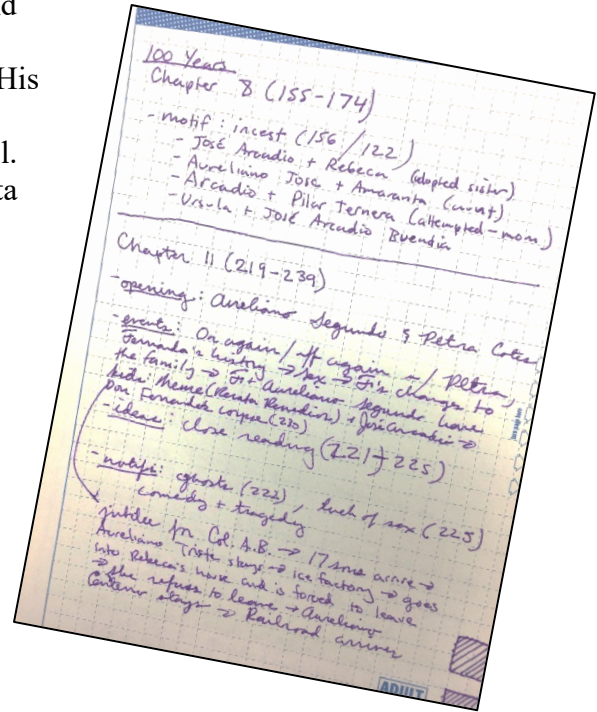 d
His
l.
ta
100 Years
Chapter 8 (155-174)
- motif: incest (156/122)
- José Arcadio + Rebeca (adopted sister)
- Aureliano José + Amaranta (aunt)
- Arcadio + Pilar Ternera (attempted-mom)
- Ursula + José Arcadio Buendia
Chapter 11 (219-239)
- opening: Aureliano Segundo & Petra Cotes
- events: On again/off again w/ Petra,
Fernanda's history → sex → F's changes to
the family → F + Aureliano Segundo have
kids: Meme (Renata Remedios) + José Arcadio →
Don Fernando's corpse (230)
- ideas: close reading (221-225)
- motifs: ghosts (222), lack of sex (225)
comedy + tragedy
jubilee for Col. A.B. → 17 sons arrive →
Aureliano Triste stays → ice factory → goes
into Rebeca's house and is forced to leave
→ she refuses to leave → Aureliano
Centeno stays → Railroad arrives
ADULT